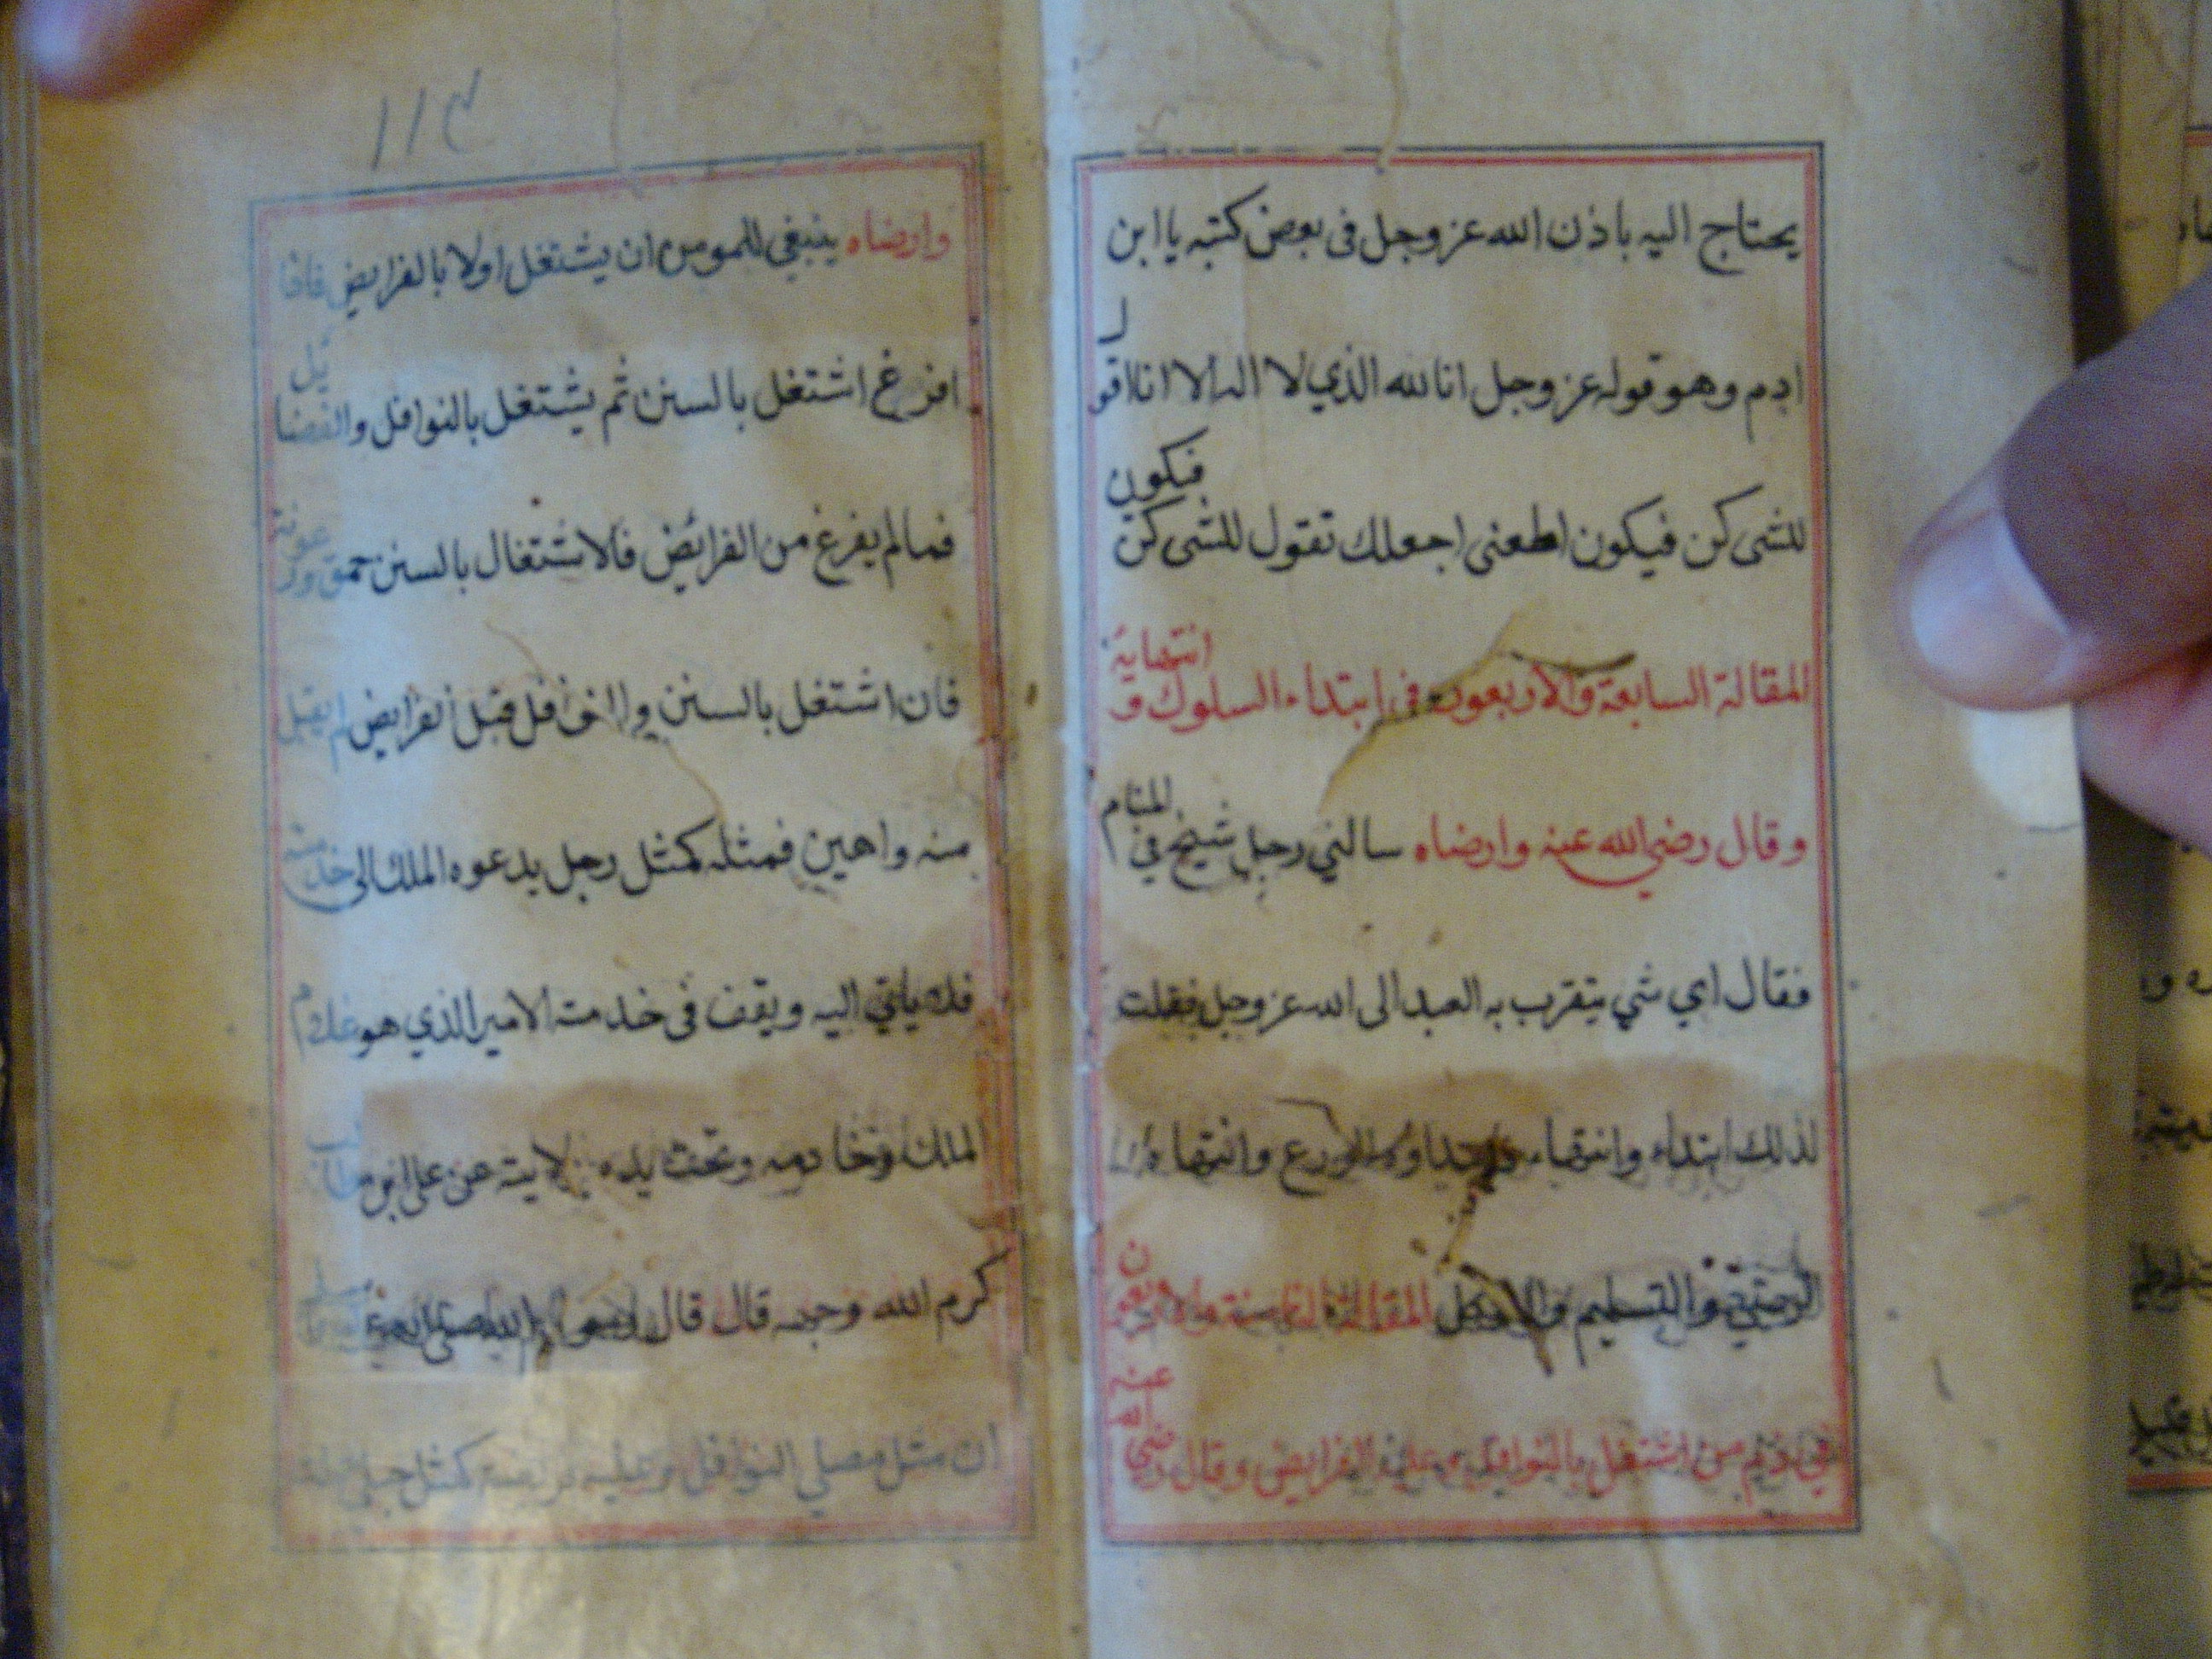 يحتاج اليه باذن الله عز وجل فى بعض كتبه يا ابن
ادم وهو قوله عز وجل انا الله الذي لا اله الا انا اقول
للشى كن فيكون اطعنى اجعلك تقول للشى كن فيكون
المقالة السابعة والاربعون فى ابتداء السلوك و انتهاية
وقال رضي الله عنه وارضاه سالني رجل شيخ في المنام
فقال اي شي يتقرب به العبد الى الله عز وجل فقلت
لذلك ابتداء وانتهاء الورع وانتهاه
والتسليم المقالة الثامنة والاربعون
في ذم من اشتغل بالنوافل الفرايض وقال رضي الله عنه
١١٤
وارضاه ينبغي للمومن ان يشتغل اولا بالفرايض فاذا
افرغ اشتغل بالسنن ثم يشتغل بالنوافل والفضايل
فما لم يفرغ من الفرائض فالاشتغال بالسنن حمق ورعونة
فان اشتغل بالسنن والنوافل قبل الفرايض لم يقبل
منه واهين فمثله كمثل رجل يدعوه الملك الى خدمته
فلا ياتي اليه ويقف فى خدمة الامير الذي هو غلام
الملك وخادمه وتحت يده ولايته عن على ابن طالب
كرم الله وجهه قال قال
ان مثل مصلي النوافل وعليه فريضة كمثل حبلى